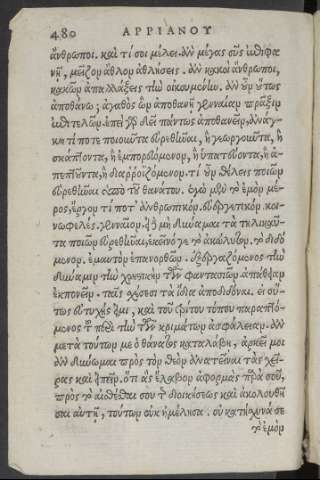 480 ΑΡΡΙΑΝΟΥ
ἄνθρωποι. καὶ τί σοι μέλει. ἂν μέγας σῦς ἐπιφα
νῇ, μεῖζον ἆθλον ἀθλήσεις. ἂν κακοὶ ἄνθρωποι,
κακῶν ἀπαλλάξεις τὴν οἰκουμένην. ἂν οὖν οὕτως
ἀποθάνω; ἀγαθὸς ὢν ἀποθανῇ γενναίαν πρᾶξιν
ἐπιτελῶν. ἐπεὶ γὰρ δεῖ πάντως ἀποθανεῖν, ἀνάγ-
κη τί ποτε ποιοῦντα εὑρεθῆναι, ἢ γεωργοῦντα, ἢ
σκάπτοντα, ἢ ἐμπορευόμενον, ἢ ὑπατεύοντα, ἢ ἀ-
πεπτοῦντα, ἢ διαρροιζόμενον. τί οὖν θέλεις ποιῶν
εὑρεθῆναι ὑπὸ τοῦ θανάτου. ἐγὼ μὲν τὸ ἐμὸν μέ-
ρος, ἔργον τί ποτ' ἀνθρωπικὸν. εὐεργετικὸν. κοι-
νωφελές. γενναῖον. εἰ δὲ μὴ δύναμαι τὰ τηλικαῦ-
τα ποιῶν εὑρεθῆναι, ἐκεῖνό γε τὸ ἀκώλυτον. τὸ διδό
μενον. ἐμαυτὸν ἐπανορθῶν. ἐξεργαζόμενος τὴν
δύναμιν τὴν χρηστικὴν τῶν φαντασιῶν. ἀπάθειαν
ἐκπονῶν. ταῖς σχέσεσι τὰ ἴδια ἀποδιδούς. εἰ οὕ-
τως εὐτυχής εἰμι, καὶ τοῦ τρίτου τόπου παραπτό-
μενος τοῦ περὶ τὴν τῶν κριμάτων ἀσφάλειαν. ἂν
μετὰ τούτων με ὁ θάνατος καταλάβῃ, ἀρκεῖ μοι
ἂν δύνωμαι πρὸς τὸν θεὸν ἀνατεῖναι τὰς χεῖ-
ρας καὶ εἰπεῖν. ὅτι ἃς ἔλαβον ἀφορμὰς παρὰ σοῦ,
πρὸς τὸ αἰσθέσθαι σου τῆς διοικήσεως καὶ ἀκολουθῆ
σαι αὐτῇ, τούτων οὐκ ἠμέλησα. οὐ κατῄσχυνά σε
τὸ ἐμὸν